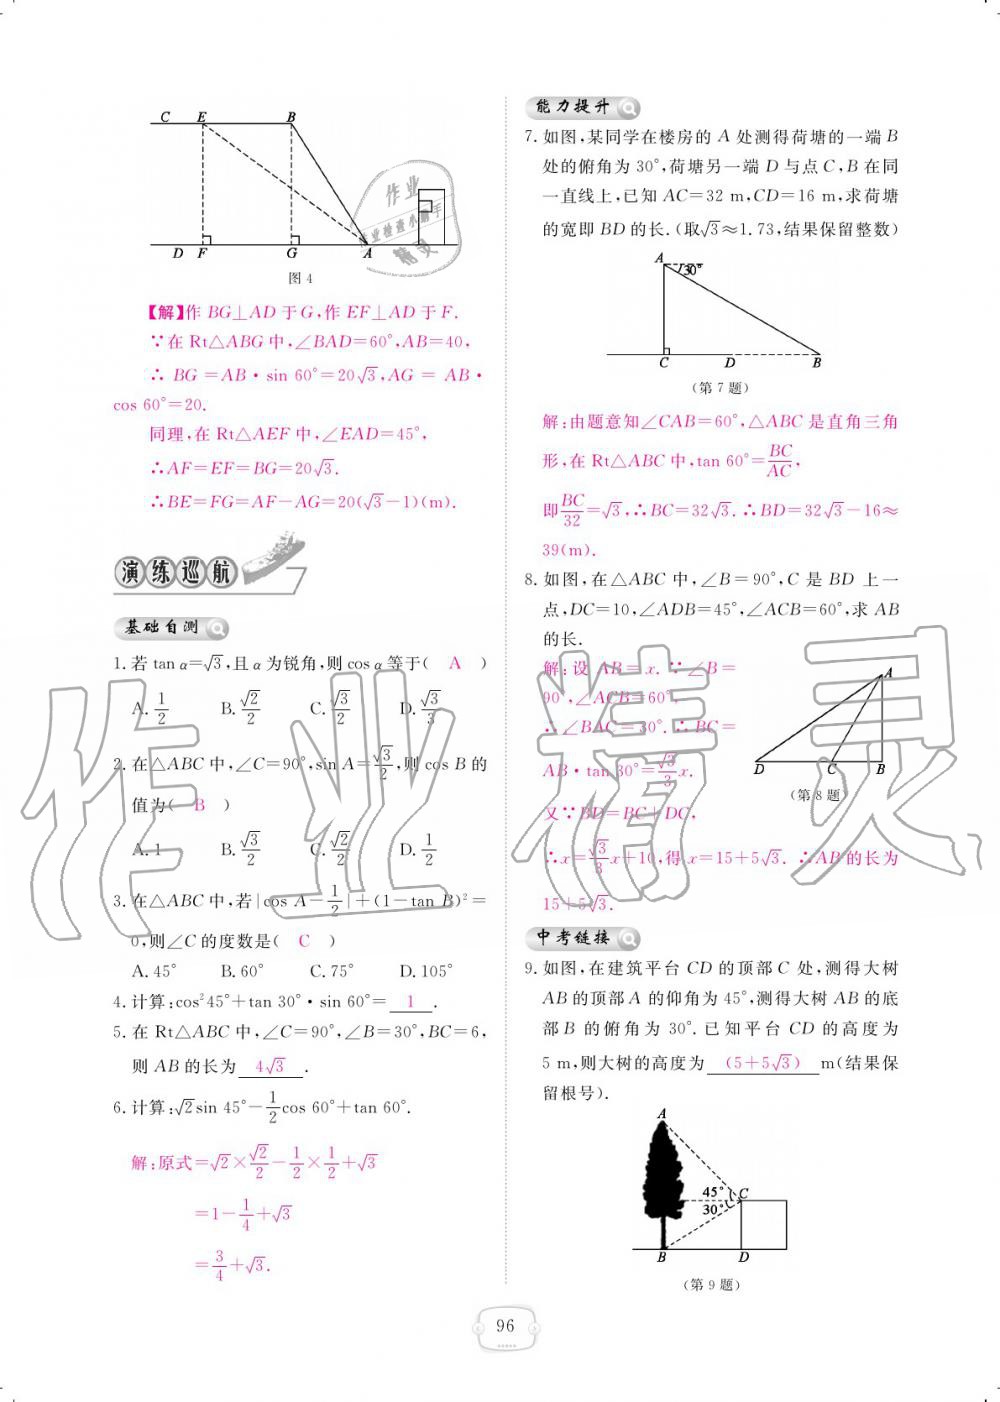 C E B
D F G A
图 4
【解】作 BG⊥AD 于 G,作 EF⊥AD 于 F.
∵在 Rt△ABG 中,∠BAD=60°,AB=40,
∴ BG =AB·sin 60°=20√3,AG = AB·
cos 60°=20.
同理,在 Rt△AEF 中,∠EAD=45°,
∴AF=EF=BG=20√3.
∴BE=FG=AF-AG=20(√3-1)(m).
演练巡航
基础自测
1.若 tan α=√3,且 α 为锐角,则 cos α 等于( A )
A.1/2 B.√2/2 C.√3/2 D.√3/3
2.在△ABC 中,∠C=90°,sin A=√3/2,则 cos B 的
值为( B )
A.1 B.√3/2 C.√2/2 D.1/2
3.在△ABC 中,若|cos A-1/2|+(1-tan B)²=
0,则∠C 的度数是( C )
A.45° B.60° C.75° D.105°
4.计算:cos²45°+tan 30°·sin 60°= 1 .
5.在 Rt△ABC 中,∠C=90°,∠B=30°,BC=6,
则 AB 的长为 4√3 .
6.计算:√2sin 45°-1/2cos 60°+tan 60°.
解:原式=√2×√2/2-1/2×1/2+√3
=1-1/4+√3
=3/4+√3.
能力提升
7.如图,某同学在楼房的 A 处测得荷塘的一端 B
处的俯角为 30°,荷塘另一端 D 与点 C,B 在同
一直线上,已知 AC=32 m,CD=16 m,求荷塘
的宽即 BD 的长.(取√3≈1.73,结果保留整数)
A 30°
C D B
(第 7 题)
解:由题意知∠CAB=60°,△ABC 是直角三角
形,在 Rt△ABC 中,tan 60°=BC/AC,
即BC/32=√3,∴BC=32√3.∴BD=32√3-16≈
39(m).
8.如图,在△ABC 中,∠B=90°,C 是 BD 上一
点,DC=10,∠ADB=45°,∠ACB=60°,求 AB
的长.
解:设 AB=x.∵∠B=
90°,∠ACB=60°,
∴∠BAC=30°.∴BC=
AB·tan 30°=√3/3x.
又∵BD=BC+DC,
∴x=√3/3x+10,得 x=15+5√3.∴AB 的长为
15+5√3.
A
D C B
(第 8 题)
中考链接
9.如图,在建筑平台 CD 的顶部 C 处,测得大树
AB 的顶部 A 的仰角为 45°,测得大树 AB 的底
部 B 的俯角为 30°.已知平台 CD 的高度为
5 m,则大树的高度为 (5+5√3) m(结果保
留根号).
A
45° C
30°
B D
(第 9 题)
96
作业精灵
作业
作业检查小助手
精灵